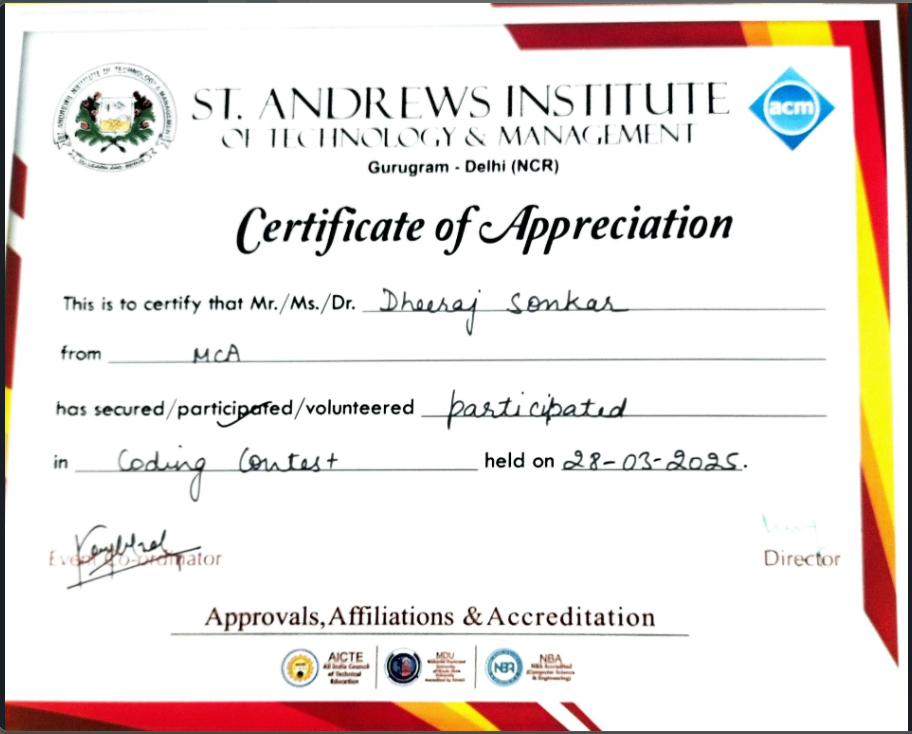 ST. ANDREWS INSTITUTE
OF TECHNOLOGY & MANAGEMENT
Gurugram - Delhi (NCR)
acm
Certificate of Appreciation
This is to certify that Mr./Ms./Dr. Dheeraj Sonkar
from MCA
has secured/participated/volunteered participated
in Coding Contest held on 28-03-2025.
Event Co-ordinator
Director
Approvals, Affiliations & Accreditation
AICTE
All India Council
of Technical
Education
MDU
NBA
NBA Accredited
(Computer Science
& Engineering)